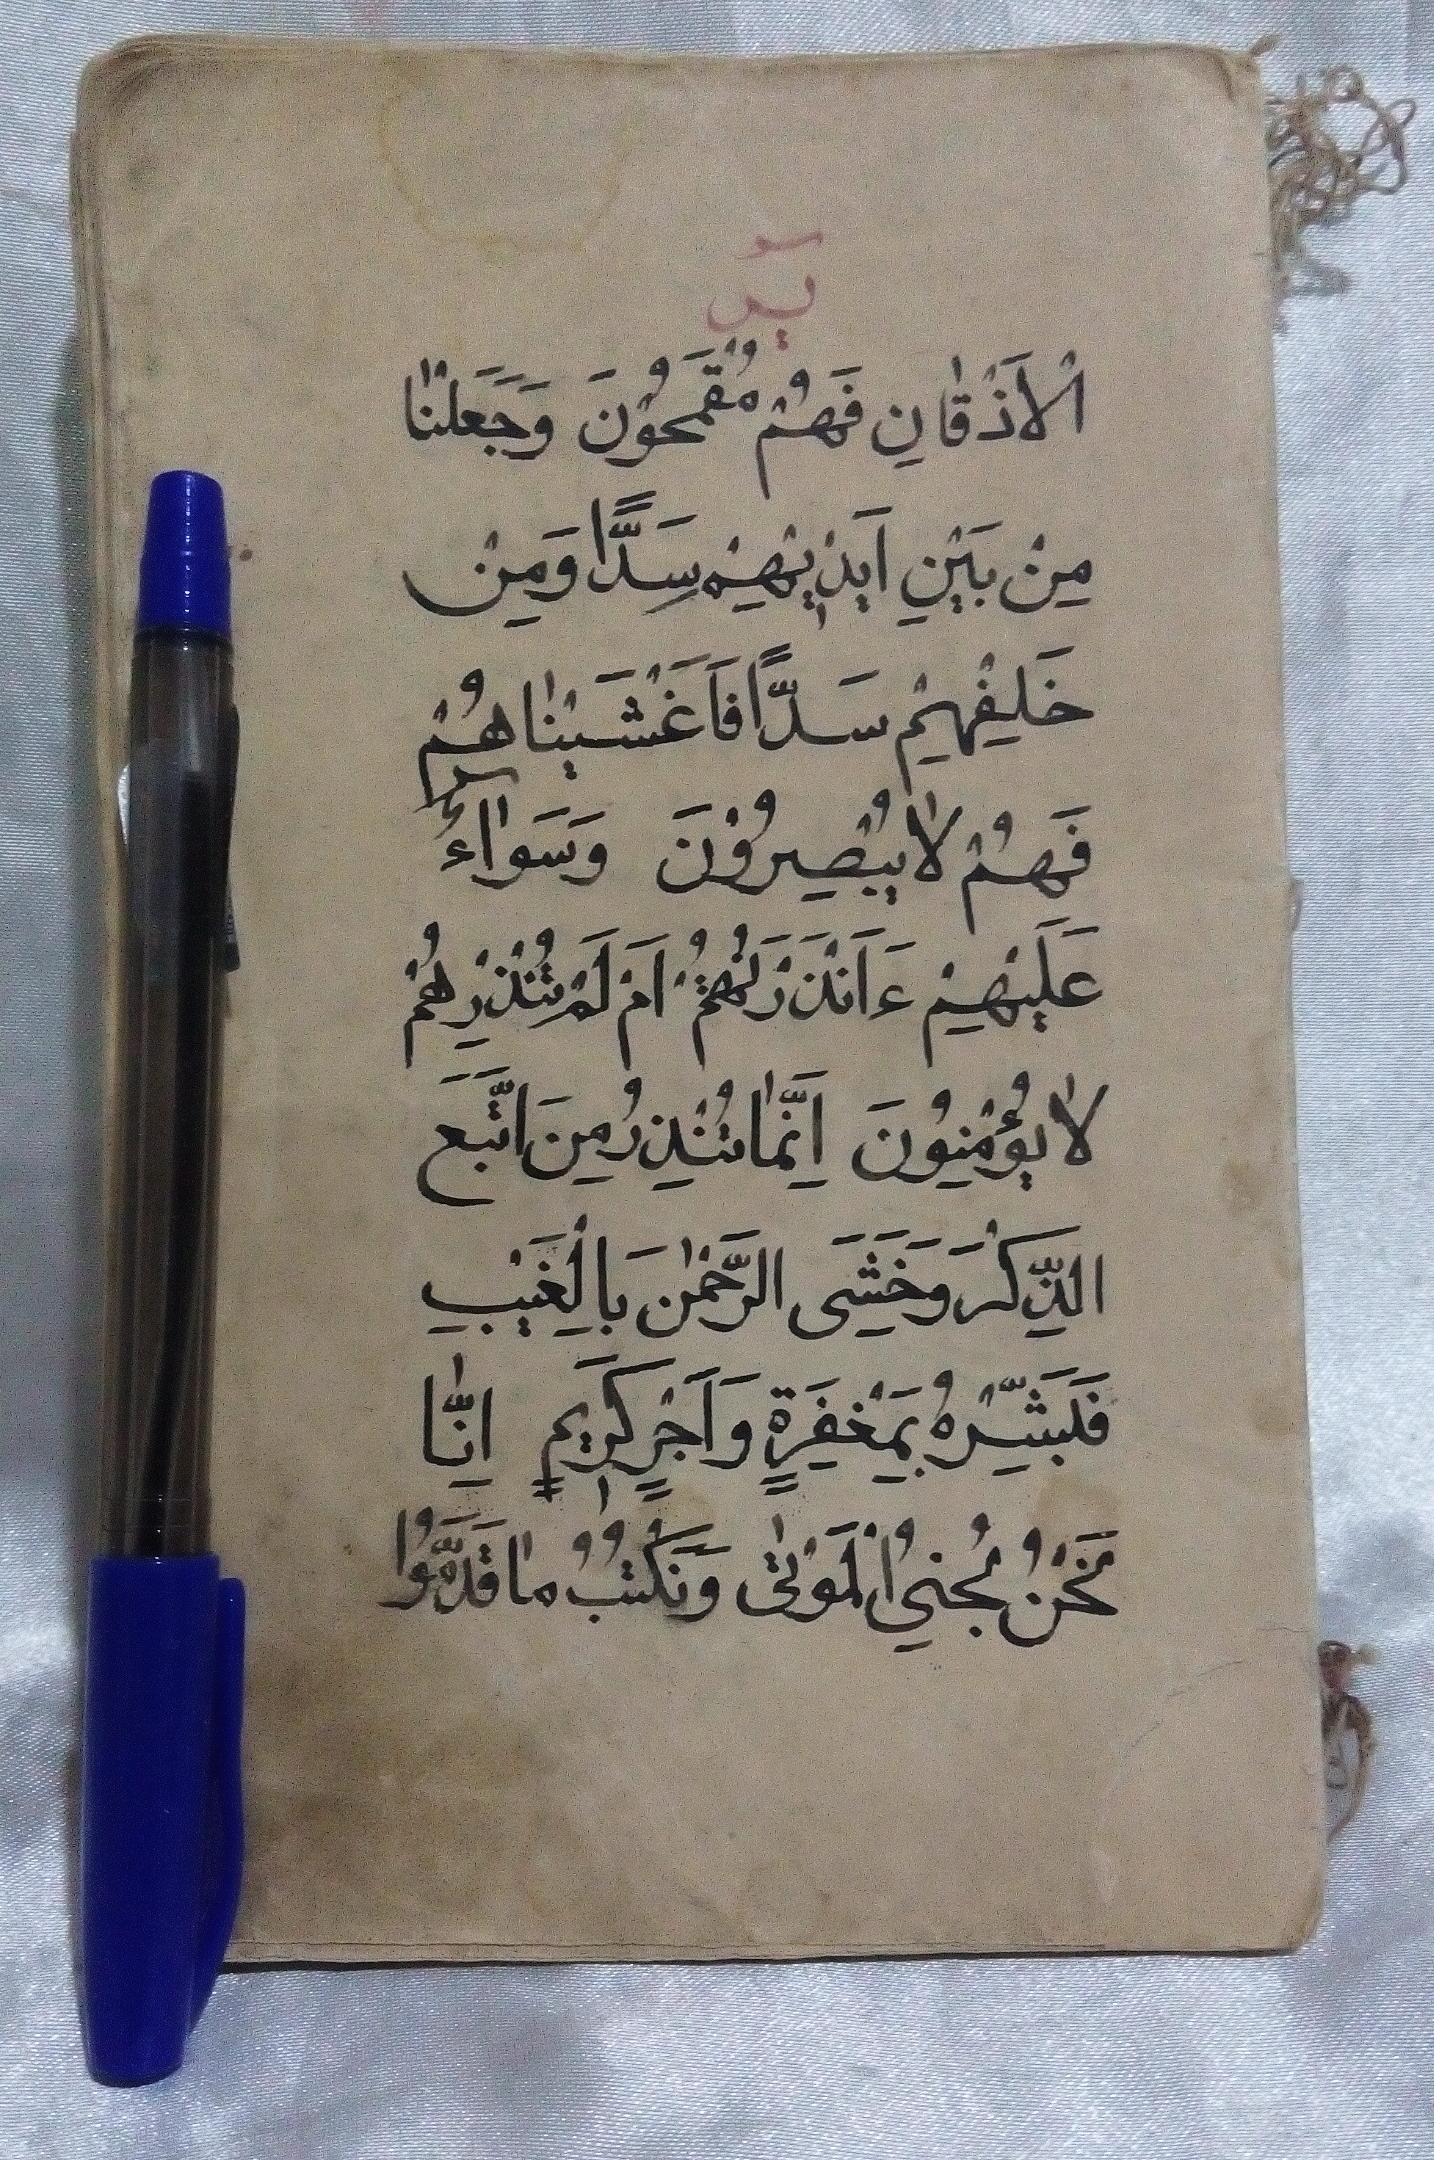 يس
الْاَذْقٰانِ فَهُمْ مُقْمَحُوْنَ وَجَعَلْنٰا
مِنْ بَيْنِ اَيْدٖيْهِمْ سَدًّا وَمِنْ
خَلْفِهِمْ سَدًّا فَاَغْشَيْنٰاهُمْ
فَهُمْ لٰا يُبْصِرُوْنَ وَسَوٰاءٌ
عَلَيْهِمْ ءَاَنْذَرْتَهُمْ اَمْ لَمْ تُنْذِرْهُمْ
لٰا يُؤْمِنُونَ اِنَّمٰا تُنْذِرُ مِنَ اتَّبَعَ
الذِّكْرَ وَخَشِىَ الرَّحْمٰنَ بِالْغَيْبِ
فَبَشِّرْهُ بِمَغْفِرَةٍ وَاَجْرٍ كَرٖيمٍ اِنّٰا
نَحْنُ نُحْيِ الْمَوْتٰى وَنَكْتُبُ مٰا قَدَّمُوْا